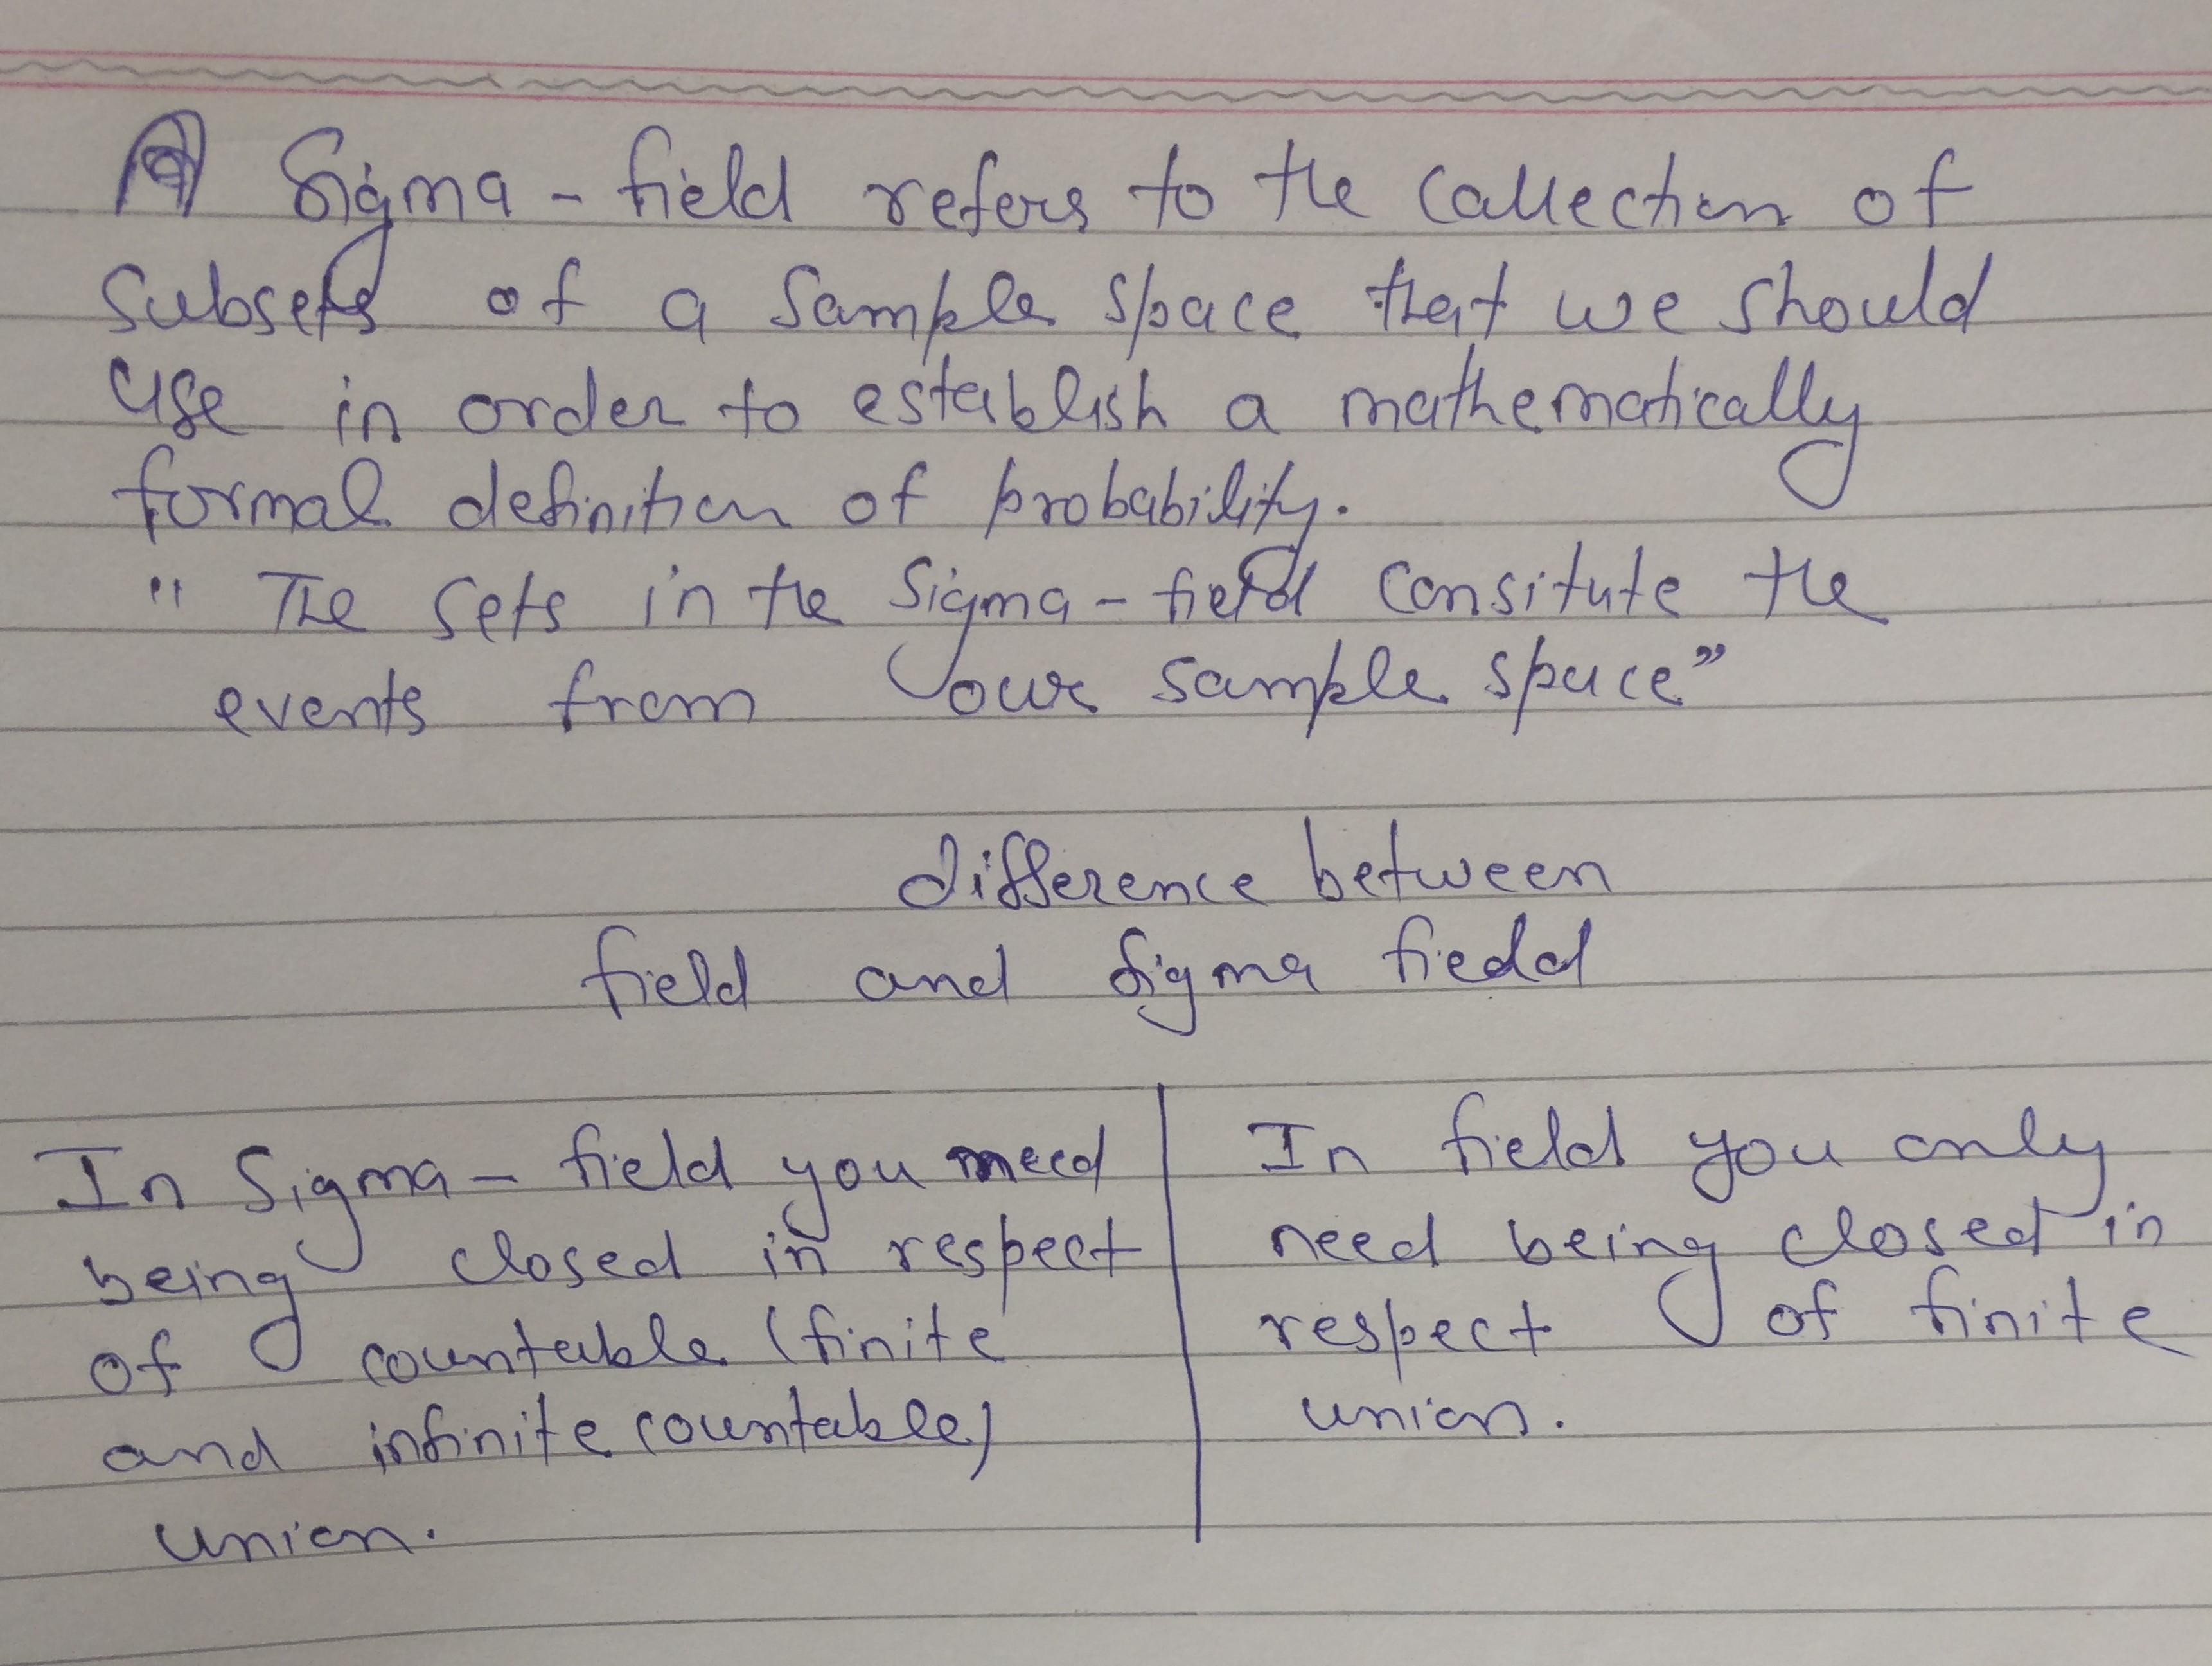 A Sigma - field refers to the collection of
subsets of a sample space that we should
use in order to establish a mathematically
formal definition of probability.
" The sets in the Sigma - field consitute the
events from our sample space"
difference between
field and Sigma field
In Sigma - field you need
being closed in respect
of countable (finite
and infinite countable)
union.
In field you only
need being closed in
respect of finite
union.